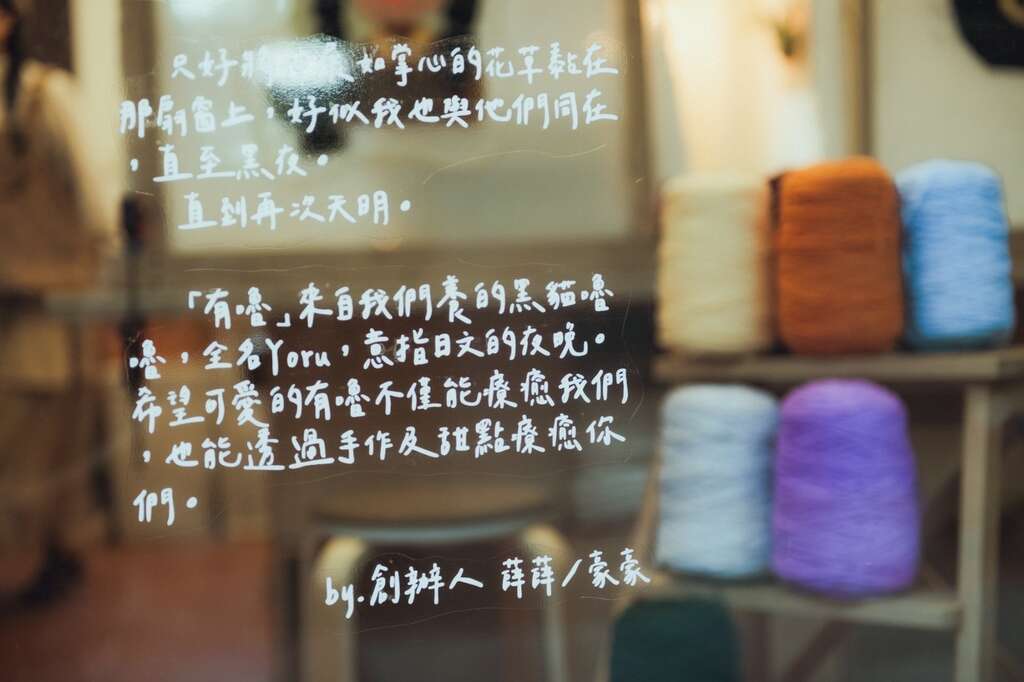 只好將如掌心的花草黏在
那扇窗上，好似我也與他們同在
，直至黑夜。
直到再次天明。
「有嚕」來自我們養的黑貓嚕
嚕，全名Yoru，意指日文的夜晚。
希望可愛的有嚕不僅能療癒我們
，也能透過手作及甜點療癒你
們。
by.創辦人 薛薛/豪豪